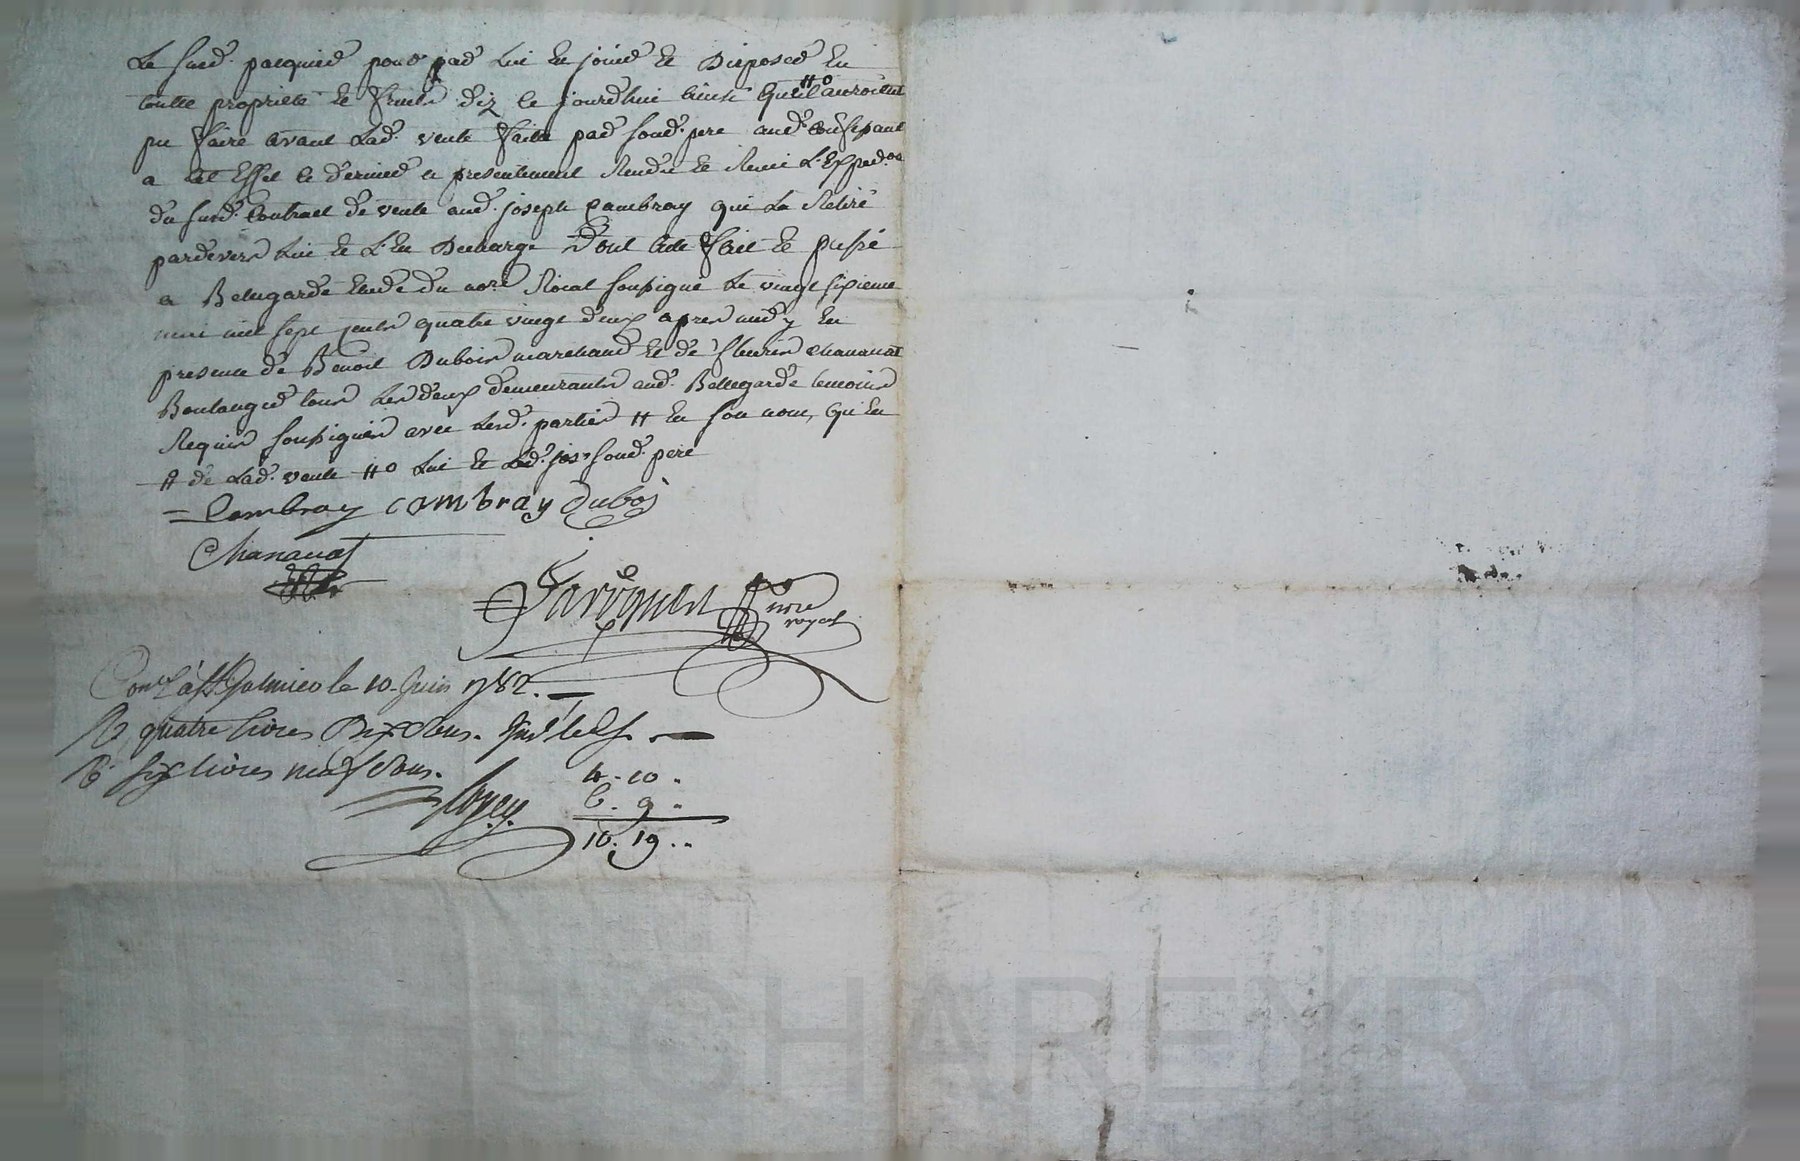 Le susd. pacquied pour pad lui en jouied et Disposed en
toutte propriete et fruits dez ce jourdhui ainsi qu'il ╫o auroient
pu faire avant lad. vente faitte pad soud. pere aud.
a cet Effet ce dernied a presentement Rendu et Remi L'Exped.on
du susd. Contract de vente aud. joseph Cambray qui La Retiré
pardevers Lui et L'En Decharge Dont acte fait et passé
a Bellegarde Etude du no.re Roial soussigné Le vingt sixieme
mai mil sept cents quatre vingt deux apres midy En
presence de Benoit Dubois marchand et de fleuris Chanavat
Boulanged tous Les deux demeurants aud. Bellegarde temoins
Requis soussignés avec Lesd. parties ╫ en son nom, qu'En
╫ de Lad. vente ╫o Lui et Led. jos. soud. pere
Cambray cambray Dubois
Chanavat
nore
royal
Con.lé à St. Galmier le 10 Juin 1782.
R. quatre livres Dix Sous.
R. six livres neuf Sous.
4. 10.
6. 9.
10. 19..
J CHAREYRON